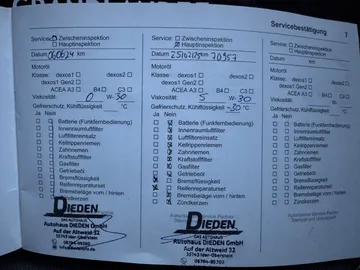 Servicebestätigung 7
Service: Zwischeninspektion
Hauptinspektion
Datum 06.06.24 km
Motoröl
Klasse: dexos1 dexos2
dexos1 Gen2
ACEA A3 B4 C3
Viskosität: 0 W-30
Gefrierschutz, Kühlflüssigkeit: °C
Ja Nein
Batterie (Funkfernbedienung)
Innenraumluftfilter
Luftfiltereinsatz
Keilrippenriemen
Zahnriemen
Kraftstofffilter
Gasfilter
Getriebeöl
Bremsflüssigkeit
Reifenreparaturset
Bremsbeläge vorn / hinten
Zündkerzen
DIEDEN
DAS AUTOHAUS
Autohaus DIEDEN GmbH
Auf der Altweid 32
55743 Idar-Oberstein
Service: Zwischeninspektion
Hauptinspektion
Datum km 70957
Motoröl
Klasse: dexos1 dexos2
dexos1 Gen2
ACEA A3 B4 C3
Viskosität: 5 W-30
Gefrierschutz, Kühlflüssigkeit: -30 °C
Ja Nein
Batterie (Funkfernbedienung)
Innenraumluftfilter
Luftfiltereinsatz
Keilrippenriemen
Zahnriemen
Kraftstofffilter
Gasfilter
Getriebeöl
Bremsflüssigkeit
Reifenreparaturset
Bremsbeläge vorn / hinten
Zündkerzen
DIEDEN
Autohaus DIEDEN GmbH
Auf der Altweid 32
55743 Idar-Oberstein
Service: Zwischeninspektion
Hauptinspektion
Datum km
Motoröl
Klasse: dexos1 dexos2
dexos1 Gen2
ACEA A3 B4 C3
Viskosität: W-
Gefrierschutz, Kühlflüssigkeit: °C
Ja Nein
Batterie (Funkfernbedienung)
Innenraumluftfilter
Luftfiltereinsatz
Keilrippenriemen
Zahnriemen
Kraftstofffilter
Gasfilter
Getriebeöl
Bremsflüssigkeit
Reifenreparaturset
Bremsbeläge vorn / hinten
Zündkerzen